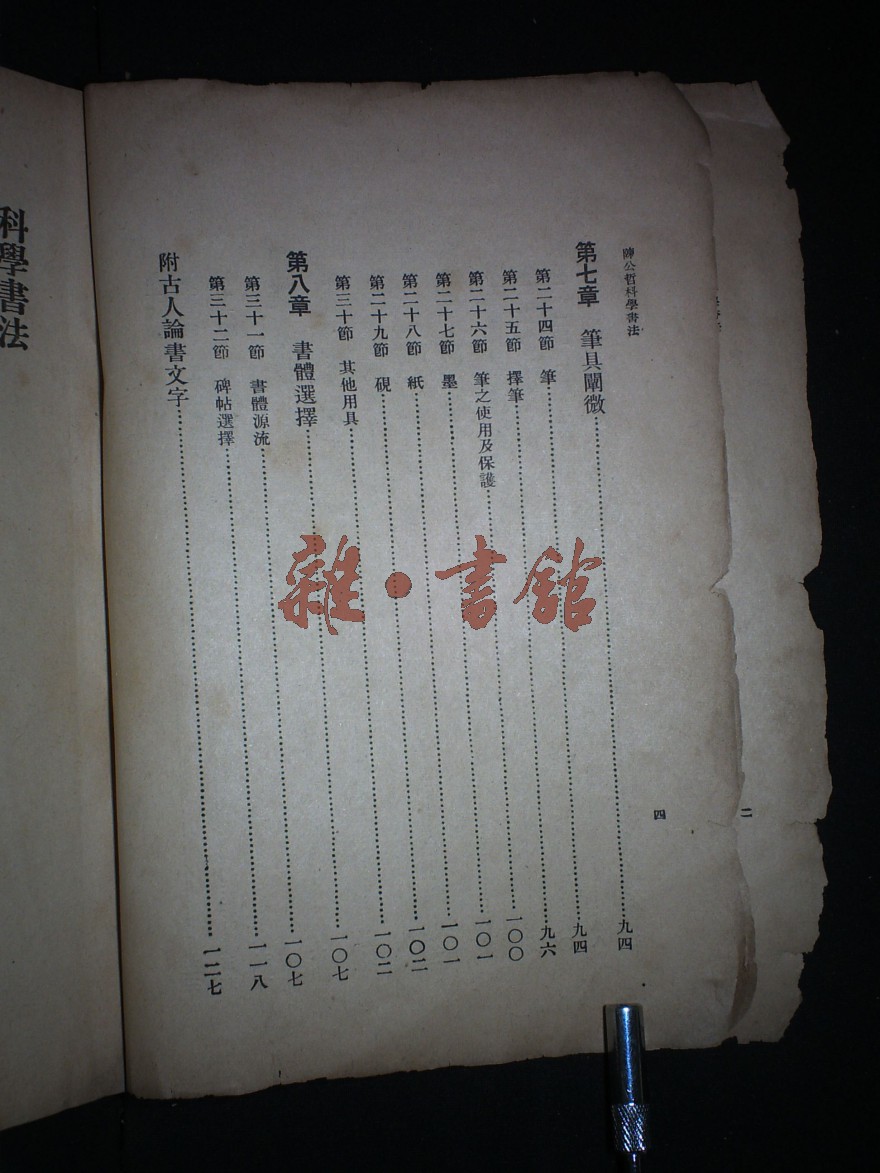 陳公哲科學書法
第七章 筆具闡微……九四
第二十四節 筆……九四
第二十五節 擇筆……九六
第二十六節 筆之使用及保護……一〇〇
第二十七節 墨……一〇一
第二十八節 紙……一〇一
第二十九節 硯……一〇二
第三十節 其他用具……一〇二
第八章 書體選擇……一〇七
第三十一節 書體源流……一〇七
第三十二節 碑帖選擇……一一八
附古人論書文字……一二七
四
二
科學書法
雜·書館